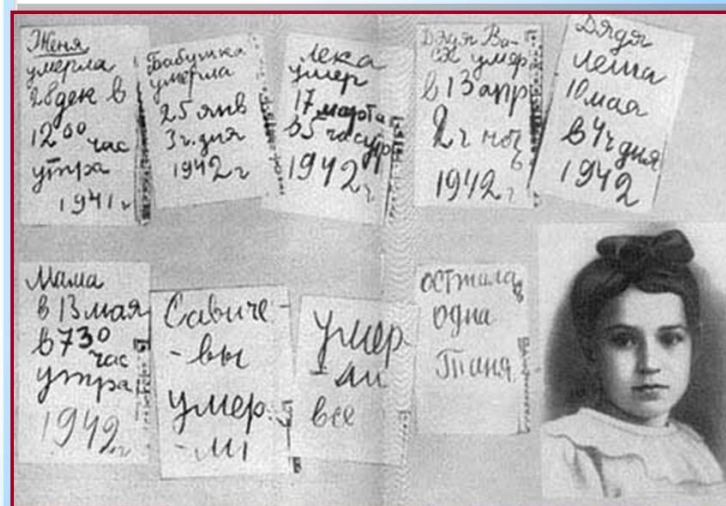 Женя
умерла
28 дек в
12 00 час
утра
1941 г
Бабушка
умерла
25 янв
3 ч. дня
1942 г
Лека
умер
17 марта
в 5 час утр
1942 г
Дядя Ва-
ся умер
в 13 апр
2 ч ноч
1942 г
Дядя
Леша
10 мая
в 4 ч дня
1942
Мама
в 13 мая
в 730
час
утра
1942 г
Савиче-
-вы
умер
-ли
умер
-ли
все
осталась
одна
Таня